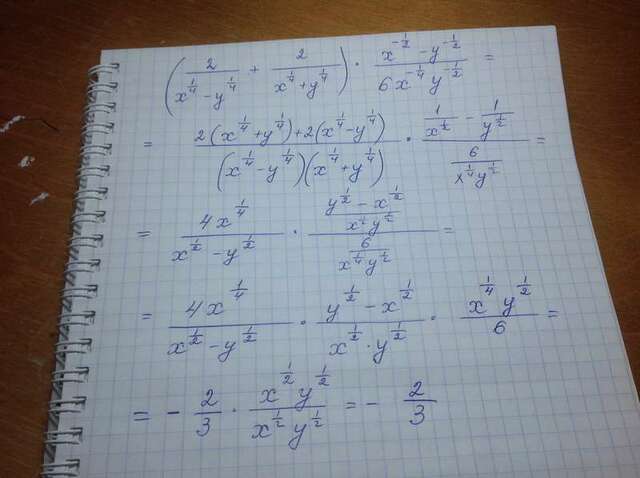 (2/(x^(1/4) - y^(1/4)) + 2/(x^(1/4) + y^(1/4))) · (x^(-1/2) - y^(-1/2))/(6x^(-1/4) y^(-1/2)) =
= (2(x^(1/4) + y^(1/4)) + 2(x^(1/4) - y^(1/4)))/((x^(1/4) - y^(1/4))(x^(1/4) + y^(1/4))) · (1/x^(1/2) - 1/y^(1/2))/(6/(x^(1/4) y^(1/2))) =
= 4x^(1/4)/(x^(1/2) - y^(1/2)) · ((y^(1/2) - x^(1/2))/(x^(1/2) y^(1/2)))/(6/(x^(1/4) y^(1/2))) =
= 4x^(1/4)/(x^(1/2) - y^(1/2)) · (y^(1/2) - x^(1/2))/(x^(1/2) · y^(1/2)) · (x^(1/4) y^(1/2))/6 =
= - 2/3 · (x^(1/2) y^(1/2))/(x^(1/2) y^(1/2)) = - 2/3